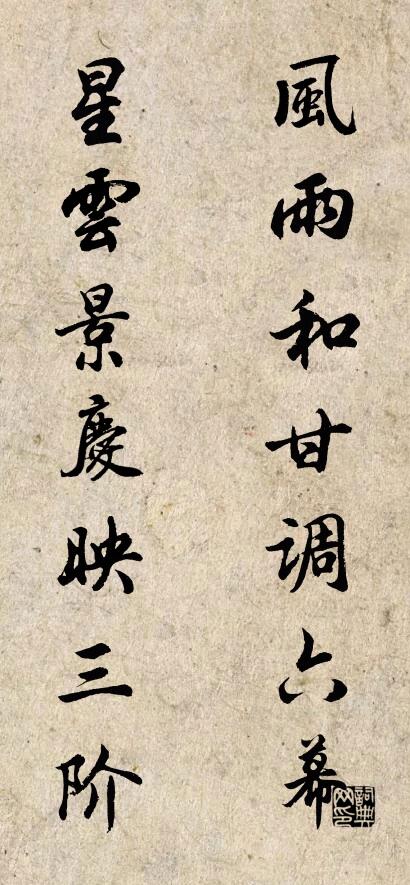 風雨和甘调六幕
星雲景慶映三阶
詞典网印